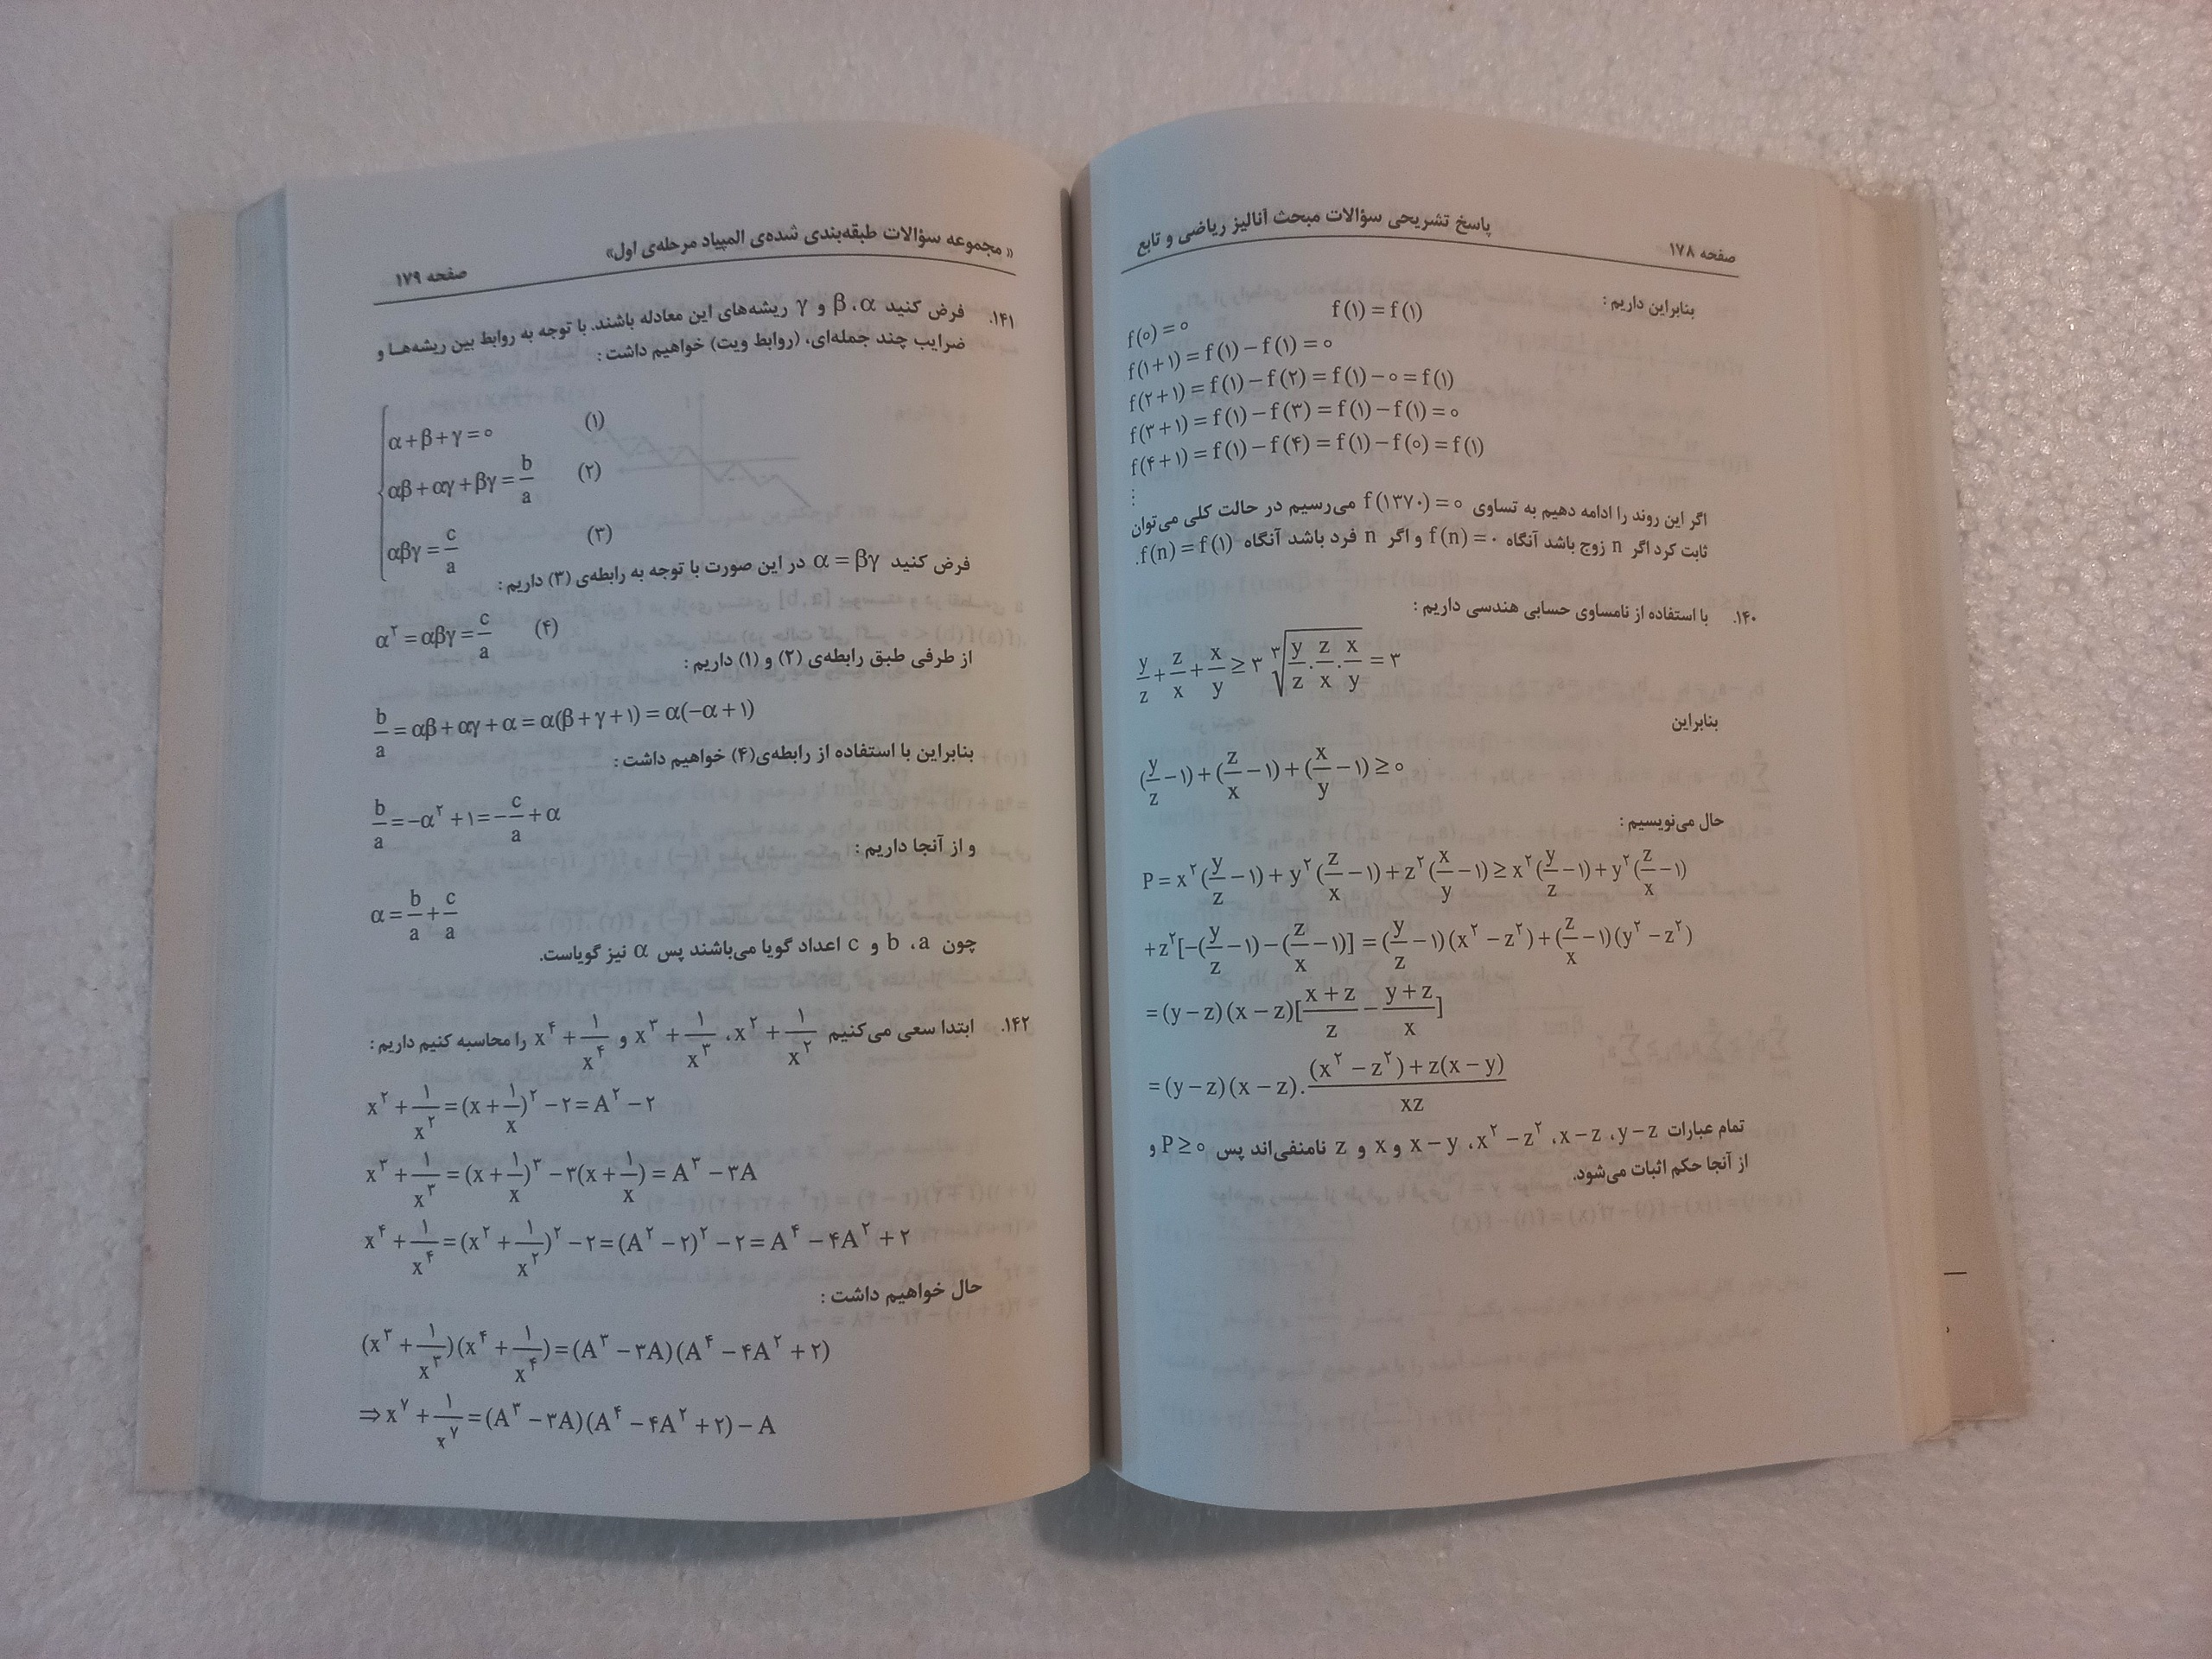 صفحه ۱۷۸ پاسخ تشریحی سؤالات مبحث آنالیز ریاضی و تابع
بنابراین داریم :
f(۰) = ۰ f(۱) = f(۱)
f(۱+۱) = f(۱) − f(۱) = ۰
f(۲+۱) = f(۱) − f(۲) = f(۱) − ۰ = f(۱)
f(۳+۱) = f(۱) − f(۳) = f(۱) − f(۱) = ۰
f(۴+۱) = f(۱) − f(۴) = f(۱) − f(۰) = f(۱)
⋮
اگر این روند را ادامه دهیم به تساوی f(۱۳۷۰) = ۰ می‌رسیم در حالت کلی می‌توان
ثابت کرد اگر n زوج باشد آنگاه f(n) = ۰ و اگر n فرد باشد آنگاه f(n) = f(۱).
۱۴۰. با استفاده از نامساوی حسابی هندسی داریم :
y/z + z/x + x/y ≥ ۳ ∛(y/z · z/x · x/y) = ۳
بنابراین
(y/z − ۱) + (z/x − ۱) + (x/y − ۱) ≥ ۰
حال می‌نویسیم :
P = x²(y/z − ۱) + y²(z/x − ۱) + z²(x/y − ۱) ≥ x²(y/z − ۱) + y²(z/x − ۱)
+ z²[−(y/z − ۱) − (z/x − ۱)] = (y/z − ۱)(x² − z²) + (z/x − ۱)(y² − z²)
= (y − z)(x − z)[(x + z)/z − (y + z)/x]
= (y − z)(x − z).((x² − z²) + z(x − y))/xz
تمام عبارات y − z ،x − z ،x² − z² ،x − y و x و z نامنفی‌اند پس P ≥ ۰ و
از آنجا حکم اثبات می‌شود.
« مجموعه سؤالات طبقه‌بندی شده‌ی المپیاد مرحله‌ی اول» صفحه ۱۷۹
۱۴۱. فرض کنید β ،α و γ ریشه‌های این معادله باشند. با توجه به روابط بین ریشه‌هـا و
ضرایب چند جمله‌ای، (روابط ویت) خواهیم داشت :
α + β + γ = ۰ (۱)
αβ + αγ + βγ = b/a (۲)
αβγ = c/a (۳)
فرض کنید α = βγ در این صورت با توجه به رابطه‌ی (۳) داریم :
α² = αβγ = c/a (۴)
از طرفی طبق رابطه‌ی (۲) و (۱) داریم :
b/a = αβ + αγ + α = α(β + γ + ۱) = α(−α + ۱)
بنابراین با استفاده از رابطه‌ی(۴) خواهیم داشت :
b/a = −α² + ۱ = −c/a + α
و از آنجا داریم :
α = b/a + c/a
چون b ،a و c اعداد گویا می‌باشند پس α نیز گویاست.
۱۴۲. ابتدا سعی می‌کنیم x² + ۱/x² ،x³ + ۱/x³ و x⁴ + ۱/x⁴ را محاسبه کنیم داریم :
x² + ۱/x² = (x + ۱/x)² − ۲ = A² − ۲
x³ + ۱/x³ = (x + ۱/x)³ − ۳(x + ۱/x) = A³ − ۳A
x⁴ + ۱/x⁴ = (x² + ۱/x²)² − ۲ = (A² − ۲)² − ۲ = A⁴ − ۴A² + ۲
حال خواهیم داشت :
(x³ + ۱/x³)(x⁴ + ۱/x⁴) = (A³ − ۳A)(A⁴ − ۴A² + ۲)
⇒ x⁷ + ۱/x⁷ = (A³ − ۳A)(A⁴ − ۴A² + ۲) − A